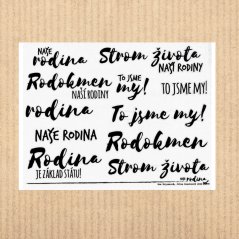 NAŠE
rodina
Strom života
NAŠÍ RODINY
Rodokmen
NAŠÍ RODINY
TO JSME
my!
TO JSME MY!
rodina
To jsme my!
NAŠE RODINA
Rodokmen
Rodina
JE ZÁKLAD STÁTU!
Strom života
rodina